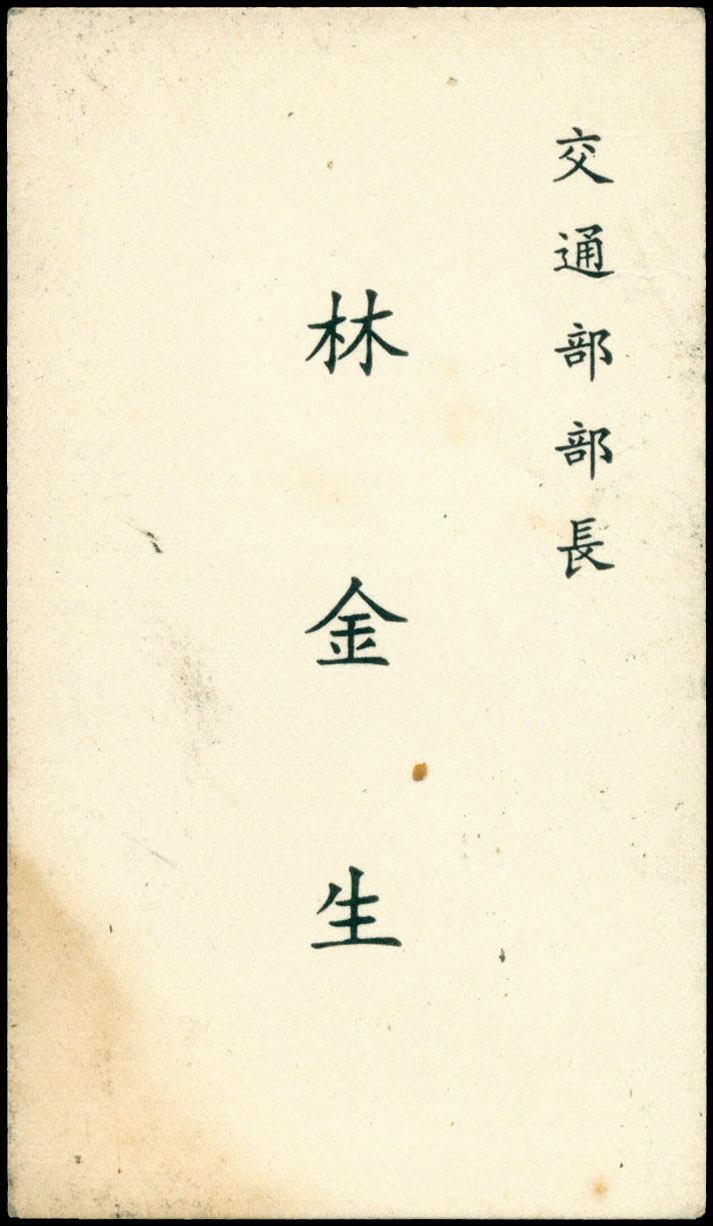 交通部部長
林金生